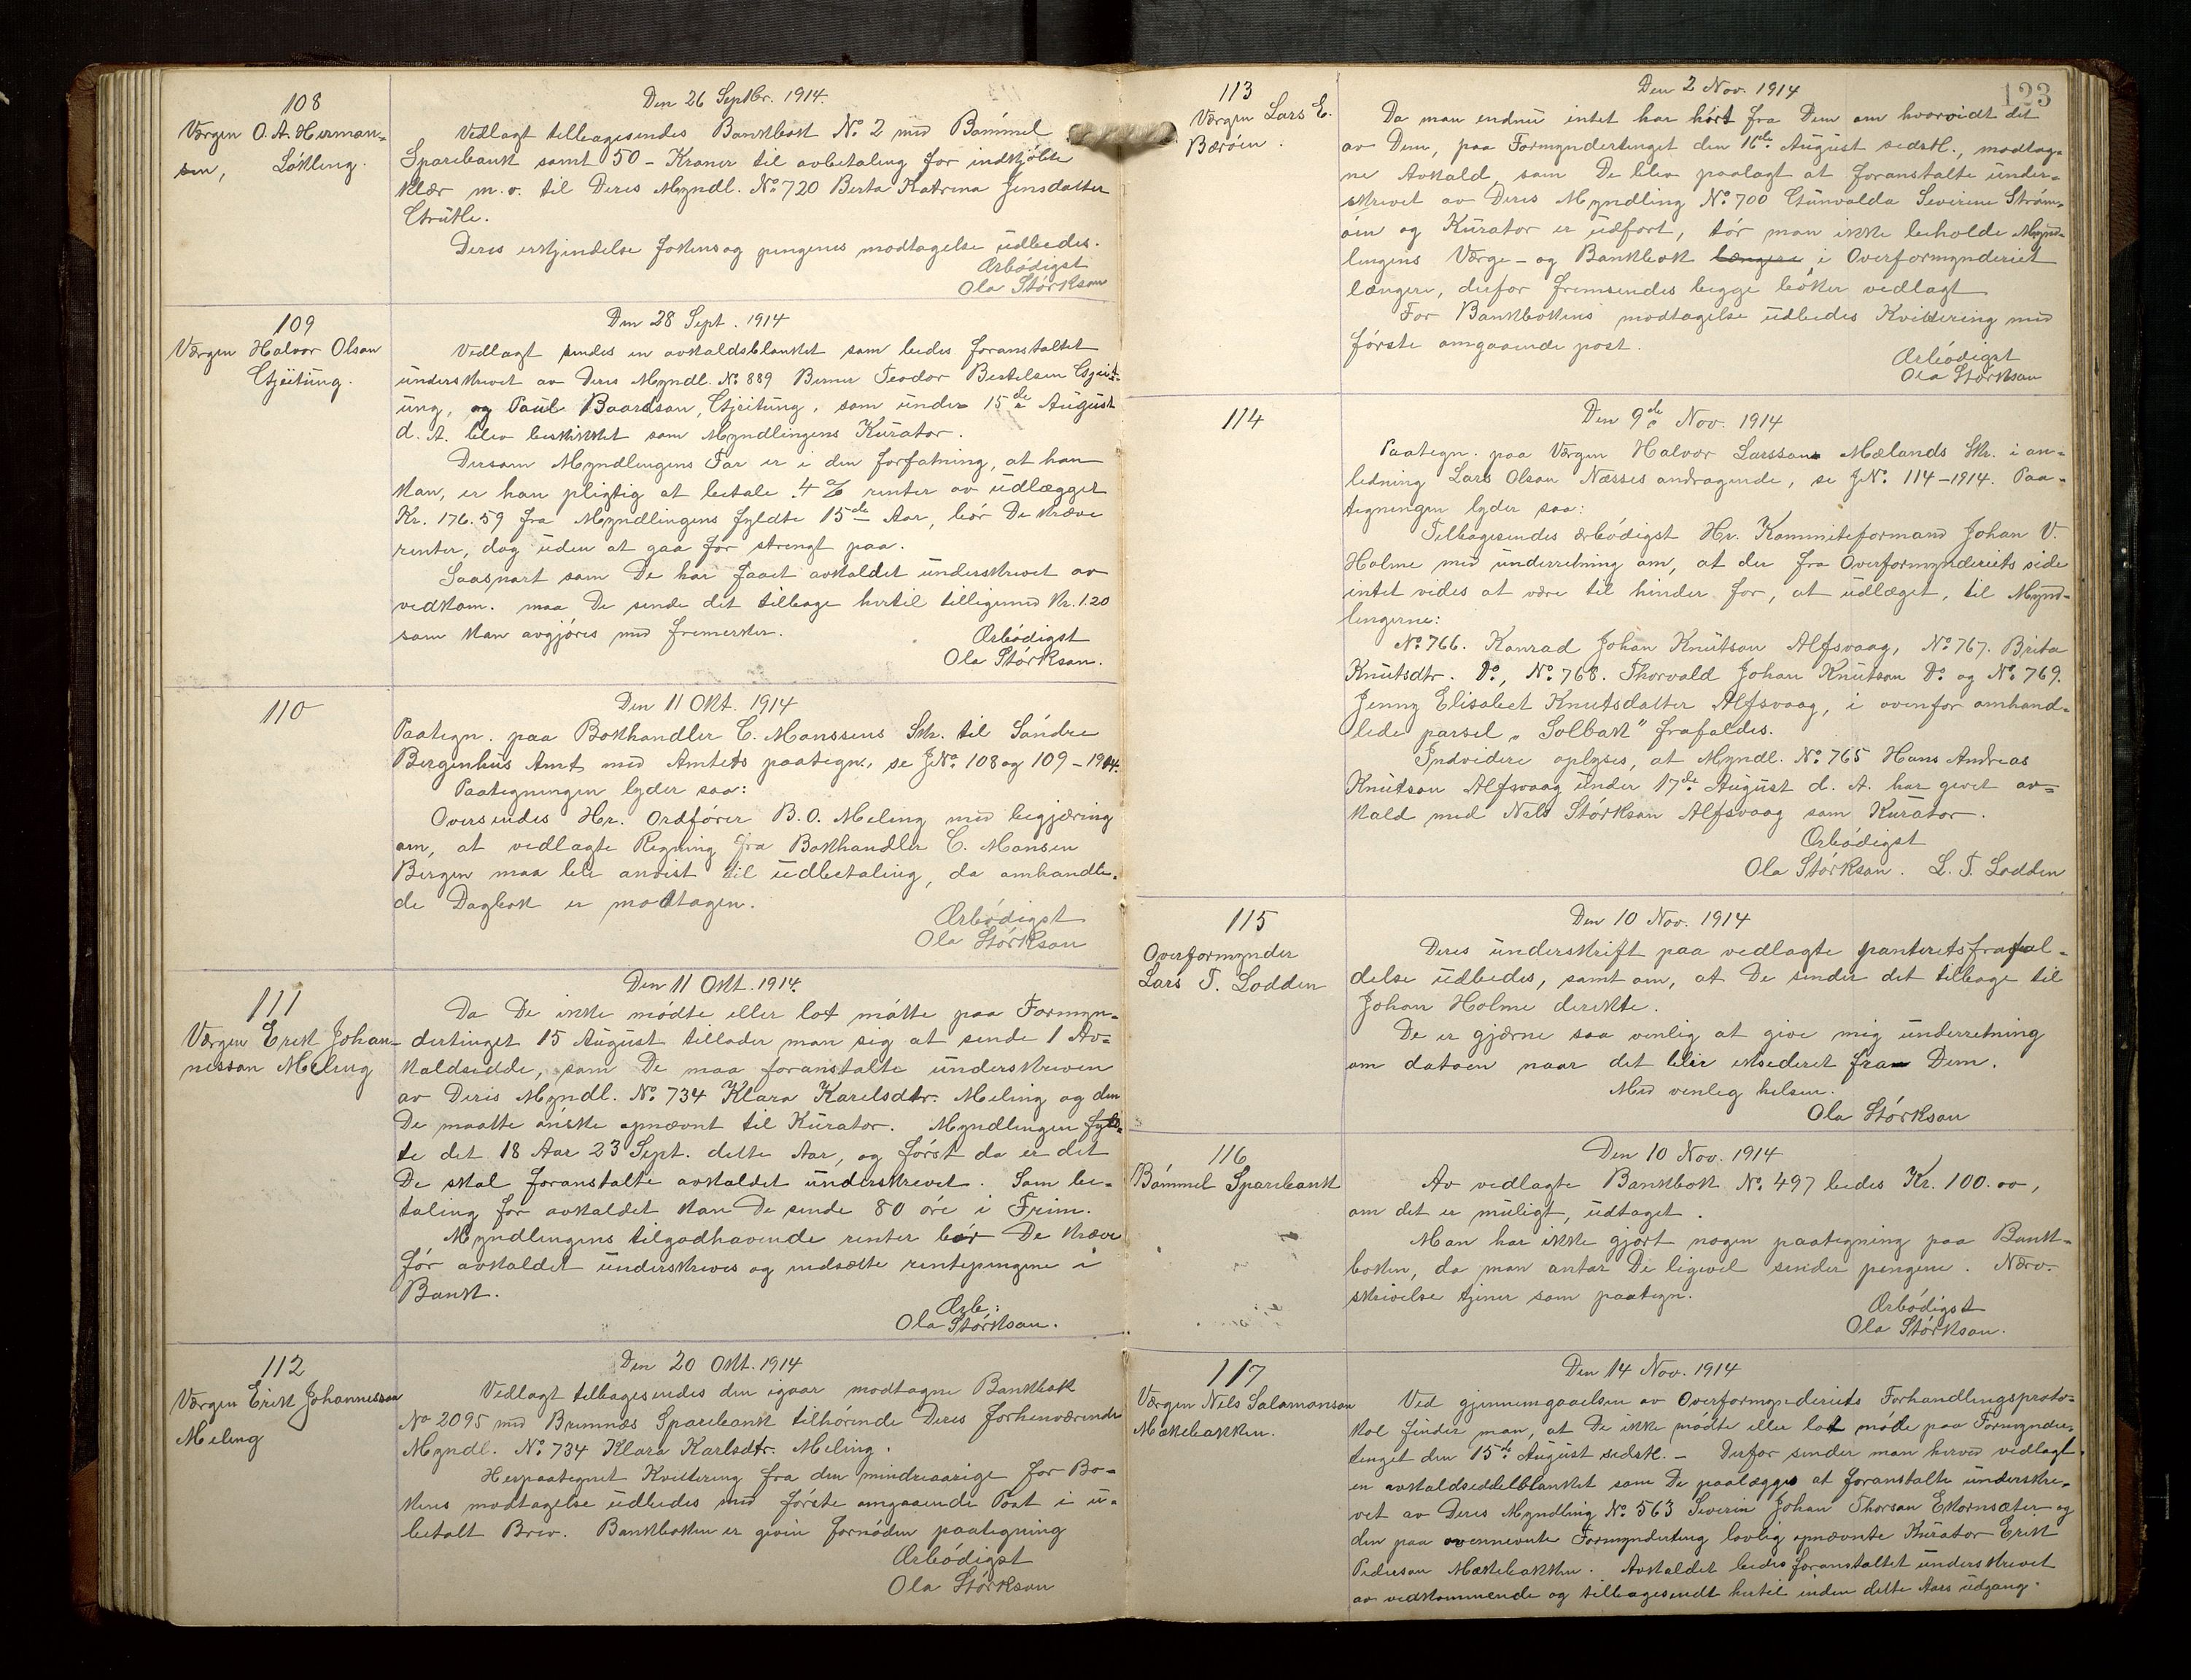 108
Værgen O. A. Herman-
sen, Løkling.
Den 26 Septbr. 1914.
Vedlagt tilbagesendes Bankbok No. 2 med Bømmel
Sparebank samt 50 – Kroner til avbetaling for indkjøbte
klær m. v. til Deres Myndl. No. 720 Berta Katrina Jensdatter
Grutle.
Deres erkjendelse for bokens og pengenes modtagelse udbedes.
Ærbødigst
Ola Størkson
109
Værgen Halvor Olson
Gjeitung.
Den 28 Sept. 1914
Vedlagt sendes en avkaldsblanket som bedes foranstaltet
underskrevet av Deres Myndl. No. 889 Berner Teodor Bertelsen Gjeit-
ung, og Paul Baardson, Gjeitung, som under 15de August
d. A. blev beskikket som Myndlingens Kurator.
Dersom Myndlingens Far er i den forfatning, at han
kan, er han pligtig at betale 4 % renter av udlægget
Kr. 176.59 fra Myndlingens fyldte 15de Aar, bør De kræve
renter, dog uden at gaa for strengt paa.
Saasnart som De har faaet avkaldet underskrevet av
vedkom. maa De sende det tilbage hertil tilligemed Kr. 1.20
som kan avgjøres med frimerker.
Ærbødigst
Ola Størkson.
110
Den 11 Okt. 1914
Paategn. paa Bokhandler C. Monssens Skr. til Søndre
Bergenhus Amt med Amtets paategn., se JNo. 108 og 109 – 1914.
Paategningen lyder saa:
Oversendes Hr. Ordfører B. O. Meling med begjæring
om, at vedlagte Regning fra Bokhandler C. Monsen
Bergen maa blir anvist til udbetaling, da omhandle-
de Dagbok er modtagen.
Ærbødigst
Ola Størkson
111
Værgen Erik Johan-
nesson Meling
Den 11 Okt. 1914.
Da De ikke mødte eller lot møtte paa Formyn-
dertinget 15 August tillader man sig at sende 1 Av-
kaldsedde, som De maa foranstalte underskreven
av Deres Myndl. No. 734 Klara Karelsdtr. Meling og den
De maatte ønske opnævnt til Kurator. Myndlingen fyld-
te det 18 Aar 23 Sept. dette Aar, og først da er det
De skal foranstalte avkaldet underskrevet. Som be-
taling for avkaldet kan De sende 80 øre i Frim.
Myndlingens tilgodhavende renter bør De kræve
før avkaldet underskrives og indsætte rentepengene i
Bank.
Ærb.:
Ola Størkson.
112
Værgen Erik Johannesson
Meling
Den 20 Okt. 1914
Vedlagt tilbagesendes den igaar modtagne Bankbok
No 2095 med Bremnæs Sparebank tilhørende Deres forhenværende
Myndl. No. 734 Klara Karlsdtr. Meling.
Herpaategnet Kvittering fra den mindreaarige for Bo-
kens modtagelse udbedes med første omgaaende Post i u-
betalt Brev. Bankboken er given fornøden paategning
Ærbødigst
Ola Størkson
123
113
Værgen Lars E.
Børøen.
Den 2 Nov. 1914
Da man endnu intet har hørt fra Dem om hvorvidt det
av Dem, paa Formyndertinget den 16de August sidstl., modtag-
ne Avkald, som De blev paalagt at foranstalte under-
skrevet av Deres Myndling No. 700 Gunvalda Severine Strøm-
øen og Kurator er udført, tør man ikke beholde Mynd-
lingens Værge- og Bankbok længere i Overformynderiet
længere, derfor fremsendes begge bøker vedlagt
For Bankbokens modtagelse udbedes Kvittering med
første omgaaende post.
Ærbødigst
Ola Størkson
114
Den 9de Nov. 1914
Paategn. paa Værgen Halvor Larssons Mælands Skr. i an-
ledning Lars Olson Næsses andragende, se JNo. 114 – 1914. Paa-
tegningen lyder saa:
Tilbagesendes ærbødigst Hr. Kommiteformand Johan V.
Holme med underretning om, at der fra Overformynderiets side
intet vides at være til hinder for, at udlæget, til Mynd-
lingerne:
No. 766. Konrad Johan Knutson Alfsvaag, No. 767. Brita
Knutsdtr. Do., No. 768. Thorvald Johan Knutson Do. og No. 769.
Jenny Elisabet Knutsdatter Alfsvaag, i ovenfor omhand-
lede parsel „Solbak" frafaldes.
Indvidere oplyses, at Myndl. No. 765 Hans Andreas
Knutson Alfsvaag under 17de August d. A. har givet av-
kald med Nels Størkson Alfsvaag som Kurator.
Ærbødigst
Ola Størkson. L. T. Lodden
115
Overformynder
Lars T. Lodden
Den 10 Nov. 1914
Deres underskrift paa vedlagte panteretsfrafal-
delse udbedes, samt om, at De sender det tilbage til
Johan Holme direkte.
De er gjærne saa venlig at give mig underretning
om datoen naar det blir eksederet fra Dem.
Med venleg helsen.
Ola Størkson
116
Bømmel Sparebank
Den 10 Nov. 1914
Av vedlagte Bankbok No. 497 bedes Kr. 100.00,
om det er muligt, udtaget.
Man har ikke gjort nogen paategning paa Bank-
boken, da man antar De ligevel sender pengene. Nærv.
skrivelse tjener som paategn.
Ærbødigst
Ola Størkson.
117
Værgen Nels Salamonson
Mækebakken.
Den 14 Nov. 1914
Ved gjennemgaaelsen av Overformynderiets Forhandlingsproto-
kol finder man, at De ikke mødte eller lot møde paa Formynder-
tinget den 15de August sidstl. – Derfor sender man herved vedlagt
en avkaldseddelblanket som De paalægges at foranstalte underskre-
vet av Deres Myndling No. 563 Severin Johan Thorson Ekornsæter og
den paa ovennevnte Formynderting lovlig opnævnte Kurator Erik
Pederson Mækebakken. Avkaldet bedes foranstaltet underskrevet
av vedkommende og tilbagesendt hertil inden dette Aars udgang.